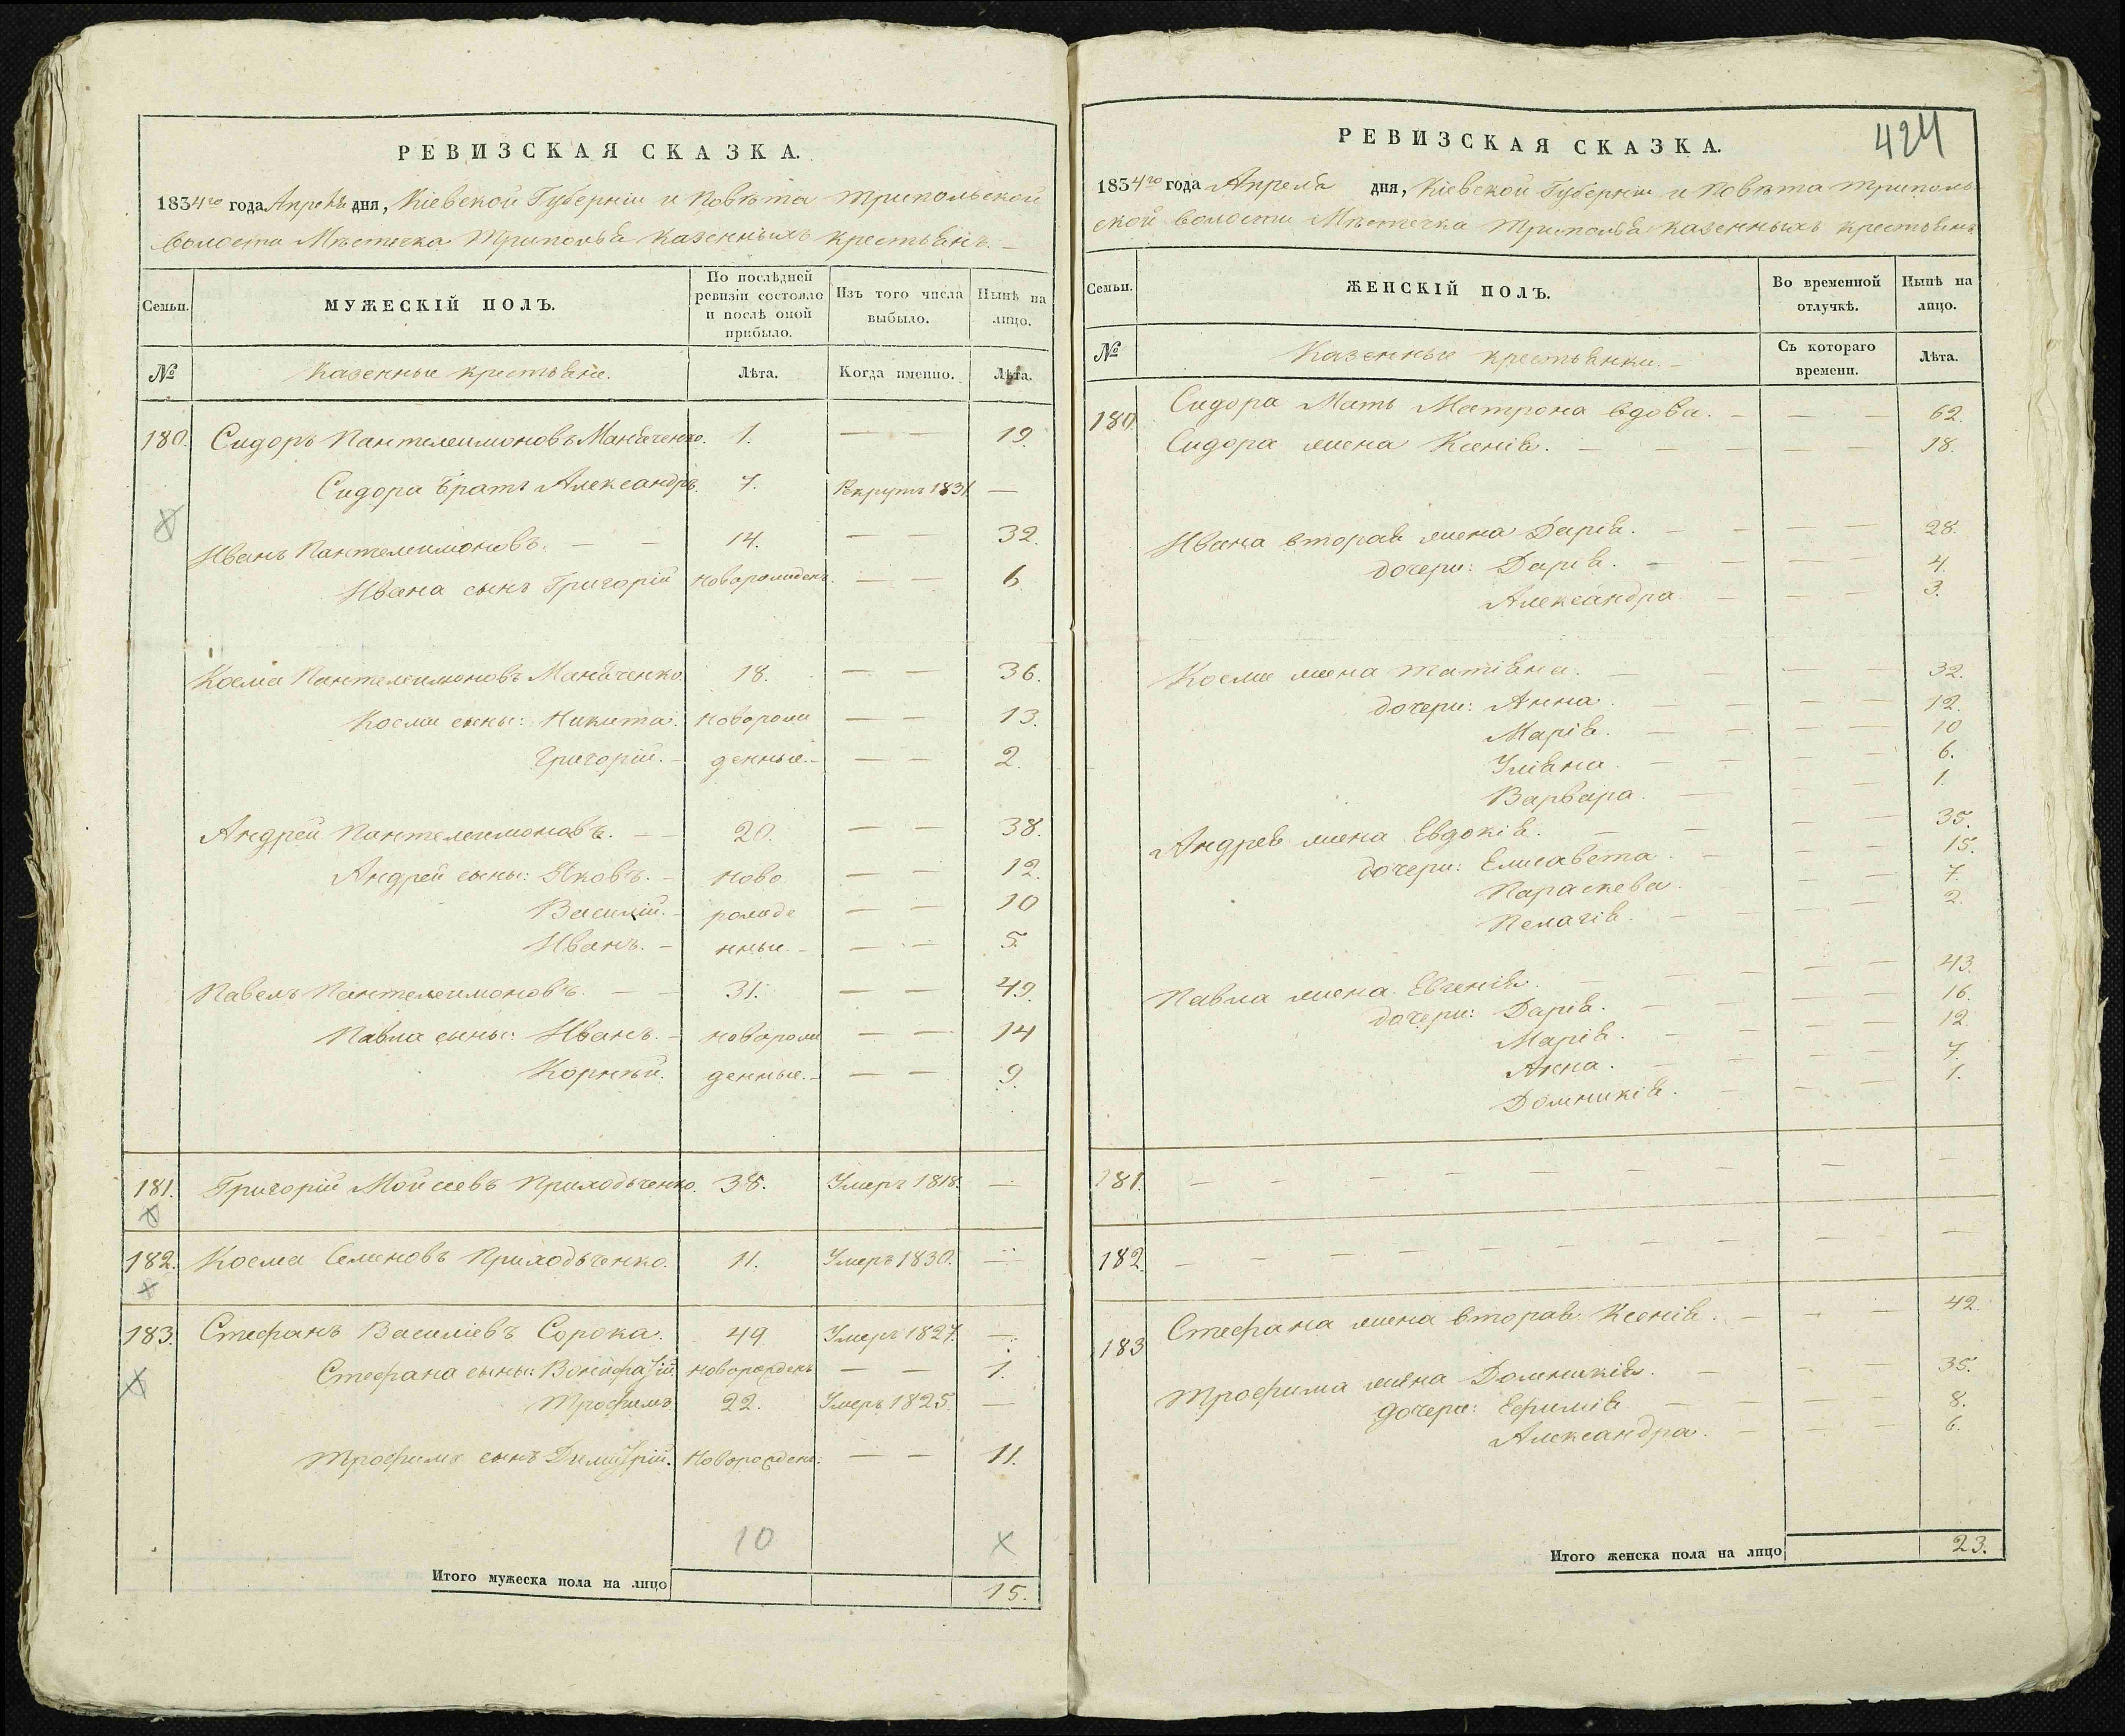 РЕВИЗСКАЯ СКАЗКА.
1834го года Апреля дня, Кіевской Губерніи и Повѣта Трипольской
волости Мѣстечка Триполья казенныхъ крестьянъ. —
Семьи. МУЖЕСКІЙ ПОЛЪ. По послѣдней ревизіи состояло и послѣ оной прибыло. Изъ того числа выбыло. Нынѣ на лицо.
№ Казенные крестьяне. Лѣта. Когда именно. Лѣта.
180. Сидоръ Пантелеимоновъ Маначенко. 1. — — 19.
Сидора братъ Александръ. 7. Рекрутъ 1831 —
Иванъ Пантелеимоновъ. — — 14. — — 32.
Ивана сынъ Григорій новорожденъ. — — 6
Косма Пантелеимоновъ Маначенко. 18. — — 36.
Космы сыны: Никита. новорож — — 13.
Григорій. — денные. — — — 2.
Андрей Пантелеимоновъ. — — 20. — — 38.
Андрей сыны: Яковъ. — ново — — 12.
Василій. — рожде — — 10
Иванъ. — нные. — — — 5.
Павелъ Пантелеимоновъ. — — 31. — — 49.
Павла сыны: Иванъ. — новорож — — 14
Корнѣй. денные. — — — 9.
181. Григорій Мойсеевъ Приходьченко. 38. Умеръ 1818. —
182. Косма Семеновъ Приходьченко. 11. Умеръ 1830. —
183. Стефанъ Василіевъ Сорока. 49 Умеръ 1827. —
Стефана сыны: Вонифатій новорожденъ — — 1.
Трофимъ 22. Умеръ 1825. —
Трофима сынъ Димитрій. Новорожденъ. — — 11.
10 ×
Итого мужеска пола на лицо 15.
424
РЕВИЗСКАЯ СКАЗКА.
1834го года Апреля дня, Кіевской Губерніи и Повѣта Триполь-
ской волости Мѣстечка Триполья казенныхъ крестьянъ
Семьи. ЖЕНСКІЙ ПОЛЪ. Во временной отлучкѣ. Нынѣ на лицо.
№ Казенные крестьянки. — Съ котораго времени. Лѣта.
180. Сидора Мать Матрона вдова. — — — 62.
Сидора жена Ксенія. — — — — — — 18.
Ивана вторая жена Дарія. — — — — 28.
дочери: Дарія. — — — — 4.
Александра — — — 3.
Космы жена Татіяна. — — — — 32.
дочери: Анна. — — — — 12.
Марія. — — — — 10
Уліяна. — — — — 6.
Варвара. — — — 1.
Андрея жена Евдокія. — — — — 35.
дочери: Елисавета. — — — 15.
Параскева. — — 7.
Пелагія. — — — — 2.
Павла жена Евгенія. — — — — — 43.
дочери: Дарія. — — — — — 16.
Марія. — — — — — 12.
Анна. — — — — 7.
Домникія. — — — 1.
181. — — — — — — — — — —
182. — — — — — — — — — — —
183 Стефана жена вторая Ксенія. — — — 42.
Трофима жена Домникія. — — — 35.
дочери: Ефимія — — — — 8.
Александра. — — — 6.
Итого женска пола на лицо 23.